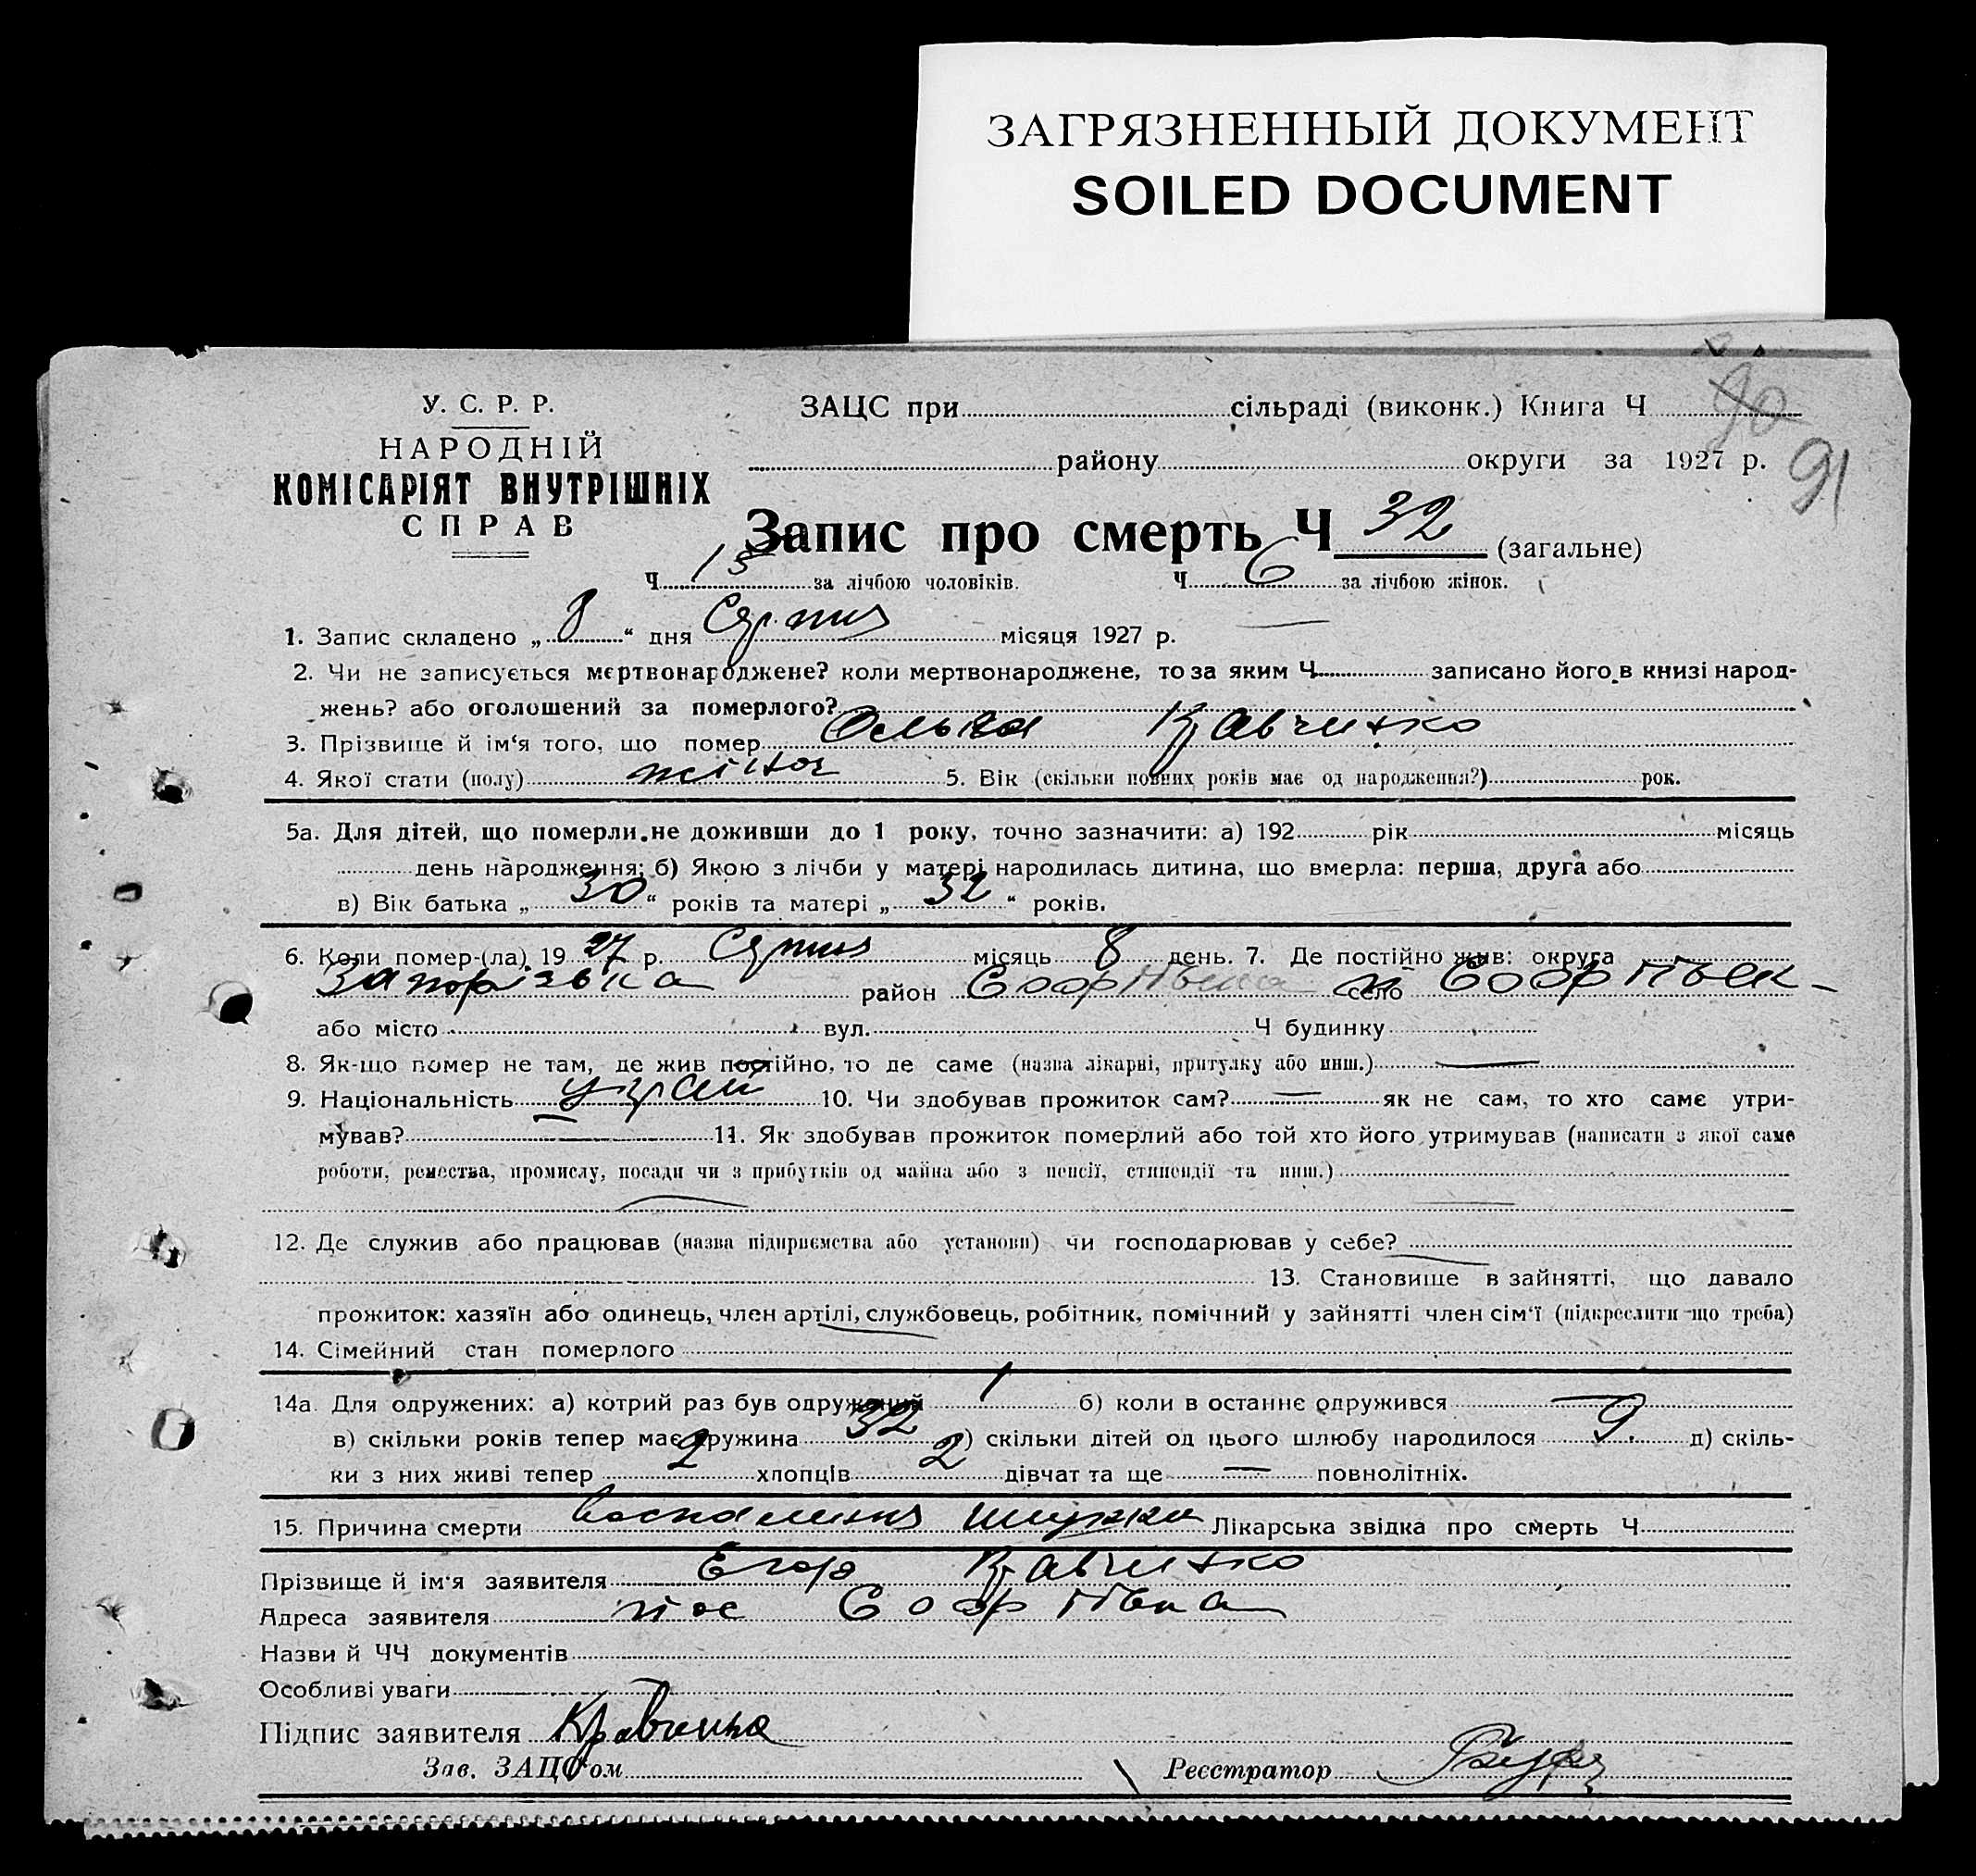 ЗАГРЯЗНЕННЫЙ ДОКУМЕНТ
SOILED DOCUMENT
90
91
У. С. Р. Р.
НАРОДНІЙ
КОМІСАРІЯТ ВНУТРІШНІХ
СПРАВ
ЗАЦС при сільраді (виконк.) Книга Ч
району округи за 1927 р.
Запис про смерть Ч 32 (загальне)
Ч 15 за лічбою чоловіків. Ч 6 за лічбою жінок.
1. Запис складено „ 8 “ дня Серпня місяця 1927 р.
2. Чи не записується мертвонароджене? коли мертвонароджене, то за яким Ч записано його в книзі народ-
жень? або оголошений за померлого?
3. Прізвище й ім‘я того, що помер Ольга Кравченко
4. Якої стати (полу) жіноч 5. Вік (скільки повних років має од народження?) рок.
5а. Для дітей, що померли не доживши до 1 року, точно зазначити: а) 192 рік місяць
день народження; б) Якою з лічби у матері народилась дитина, що вмерла: перша, друга або
в) Вік батька „ 30 “ років та матері „ 32 “ років.
6. Коли помер-(ла) 19 27 р. Серпня місяць 8 день. 7. Де постійно жив: округа
Запорізька район Софіївка село Софіївк-
або місто вул. Ч будинку
8. Як-що помер не там, де жив постійно, то де саме (назва лікарні, притулку або инш.) —
9. Національність украй 10. Чи здобував прожиток сам? — як не сам, то хто саме утри-
мував? — 11. Як здобував прожиток померлий або той хто його утримував (написати з якої саме
роботи, ремества, промислу, посади чи з прибутків од майна або з пенсії, стипендії та инш.)
12. Де служив або працював (назва підприємства або установи) чи господарював у себе?
13. Становище в зайнятті, що давало
прожиток: хазяїн або одинець, член артілі, службовець, робітник, помічний у зайнятті член сім‘ї (підкреслити що треба)
14. Сімейний стан померлого
14а. Для одружених: а) котрий раз був одружений 1 б) коли в останнє одружився —
в) скільки років тепер має дружина 32 г) скільки дітей од цього шлюбу народилося 9. д) скіль-
ки з них живі тепер 2 хлопців 2 дівчат та ще — повнолітніх.
15. Причина смерти Лікарська звідка про смерть Ч
Прізвище й ім‘я заявителя Егор Кравченко
Адреса заявителя пос Софіївка
Назви й ЧЧ документів
Особливі уваги
Підпис заявителя Кравченко
Зав. ЗАЦС‘ом Реєстратор